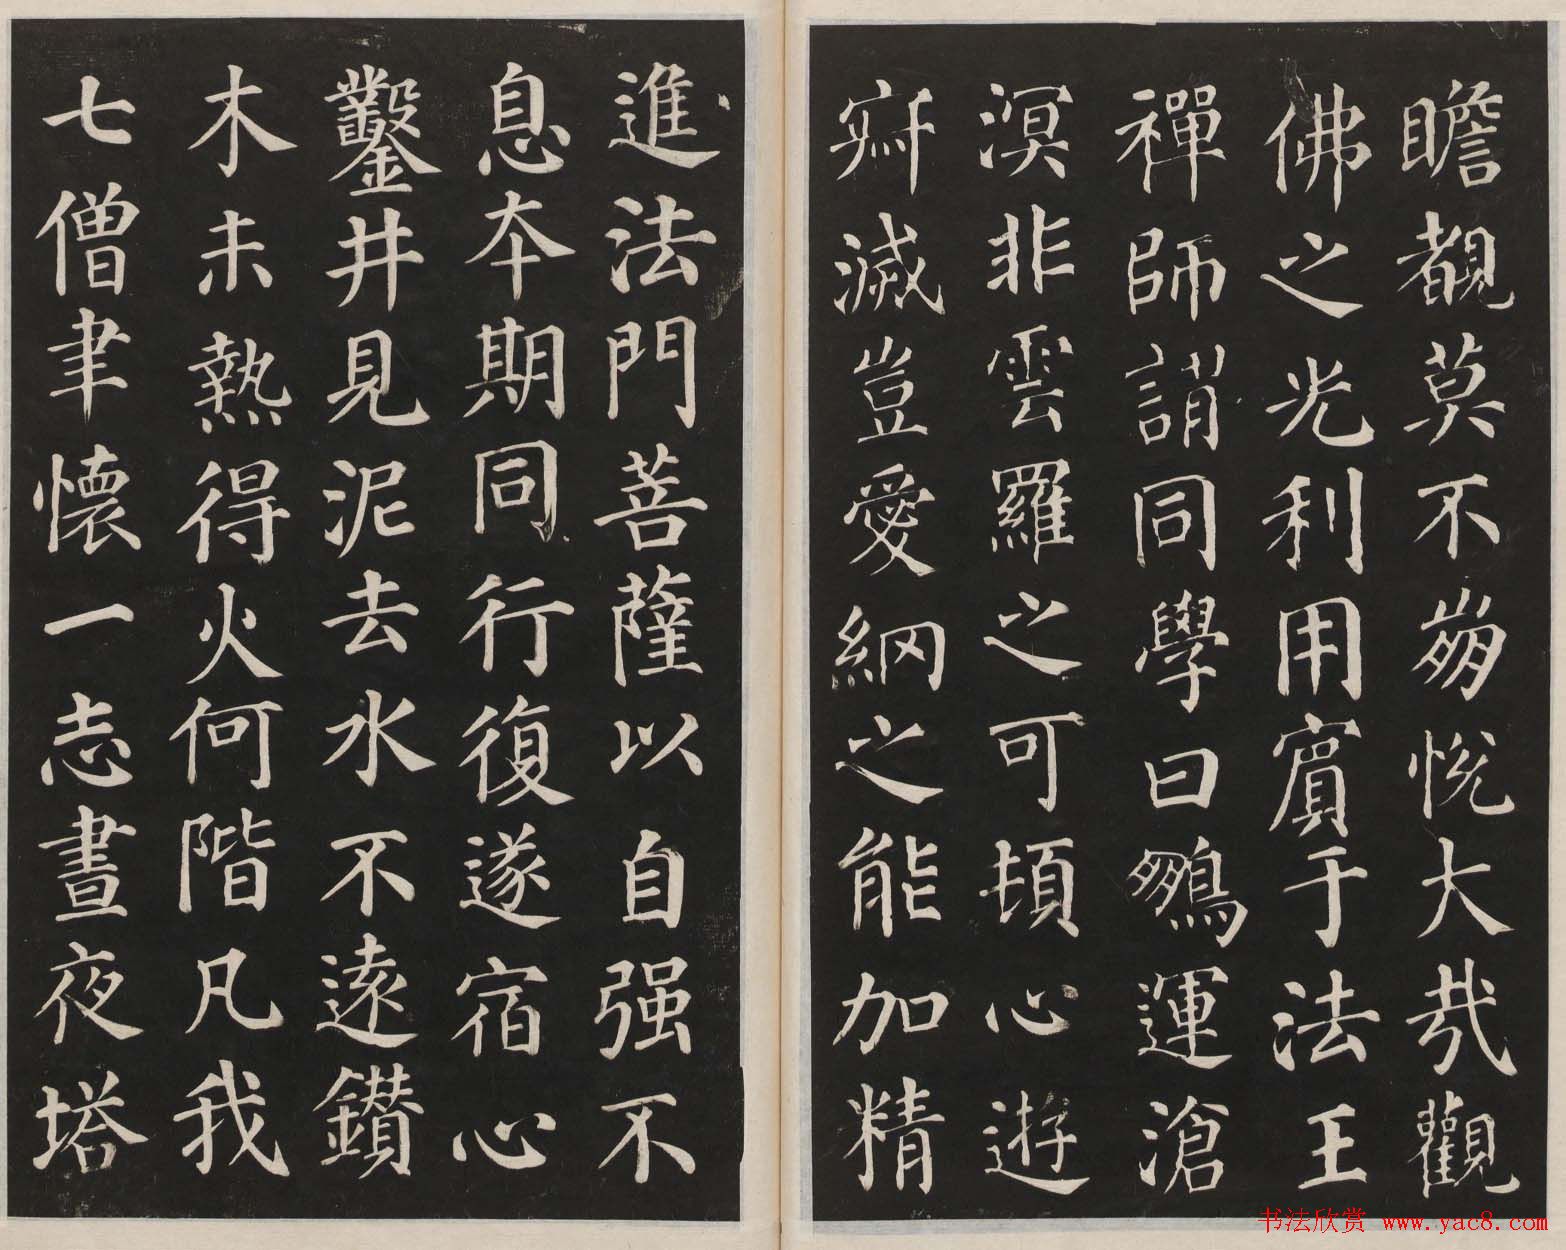 瞻覩莫不崩悅大哉觀
佛之光利用賓于法王
禪師謂同學曰鵬運滄
溟非雲羅之可頓心遊
寂滅豈愛網之能加精
進法門菩薩以自强不
息本期同行復遂宿心
鑿井見泥去水不遠鑽
木未熱得火何階凡我
七僧聿懷一志晝夜塔
书法欣赏 www.yac8.com